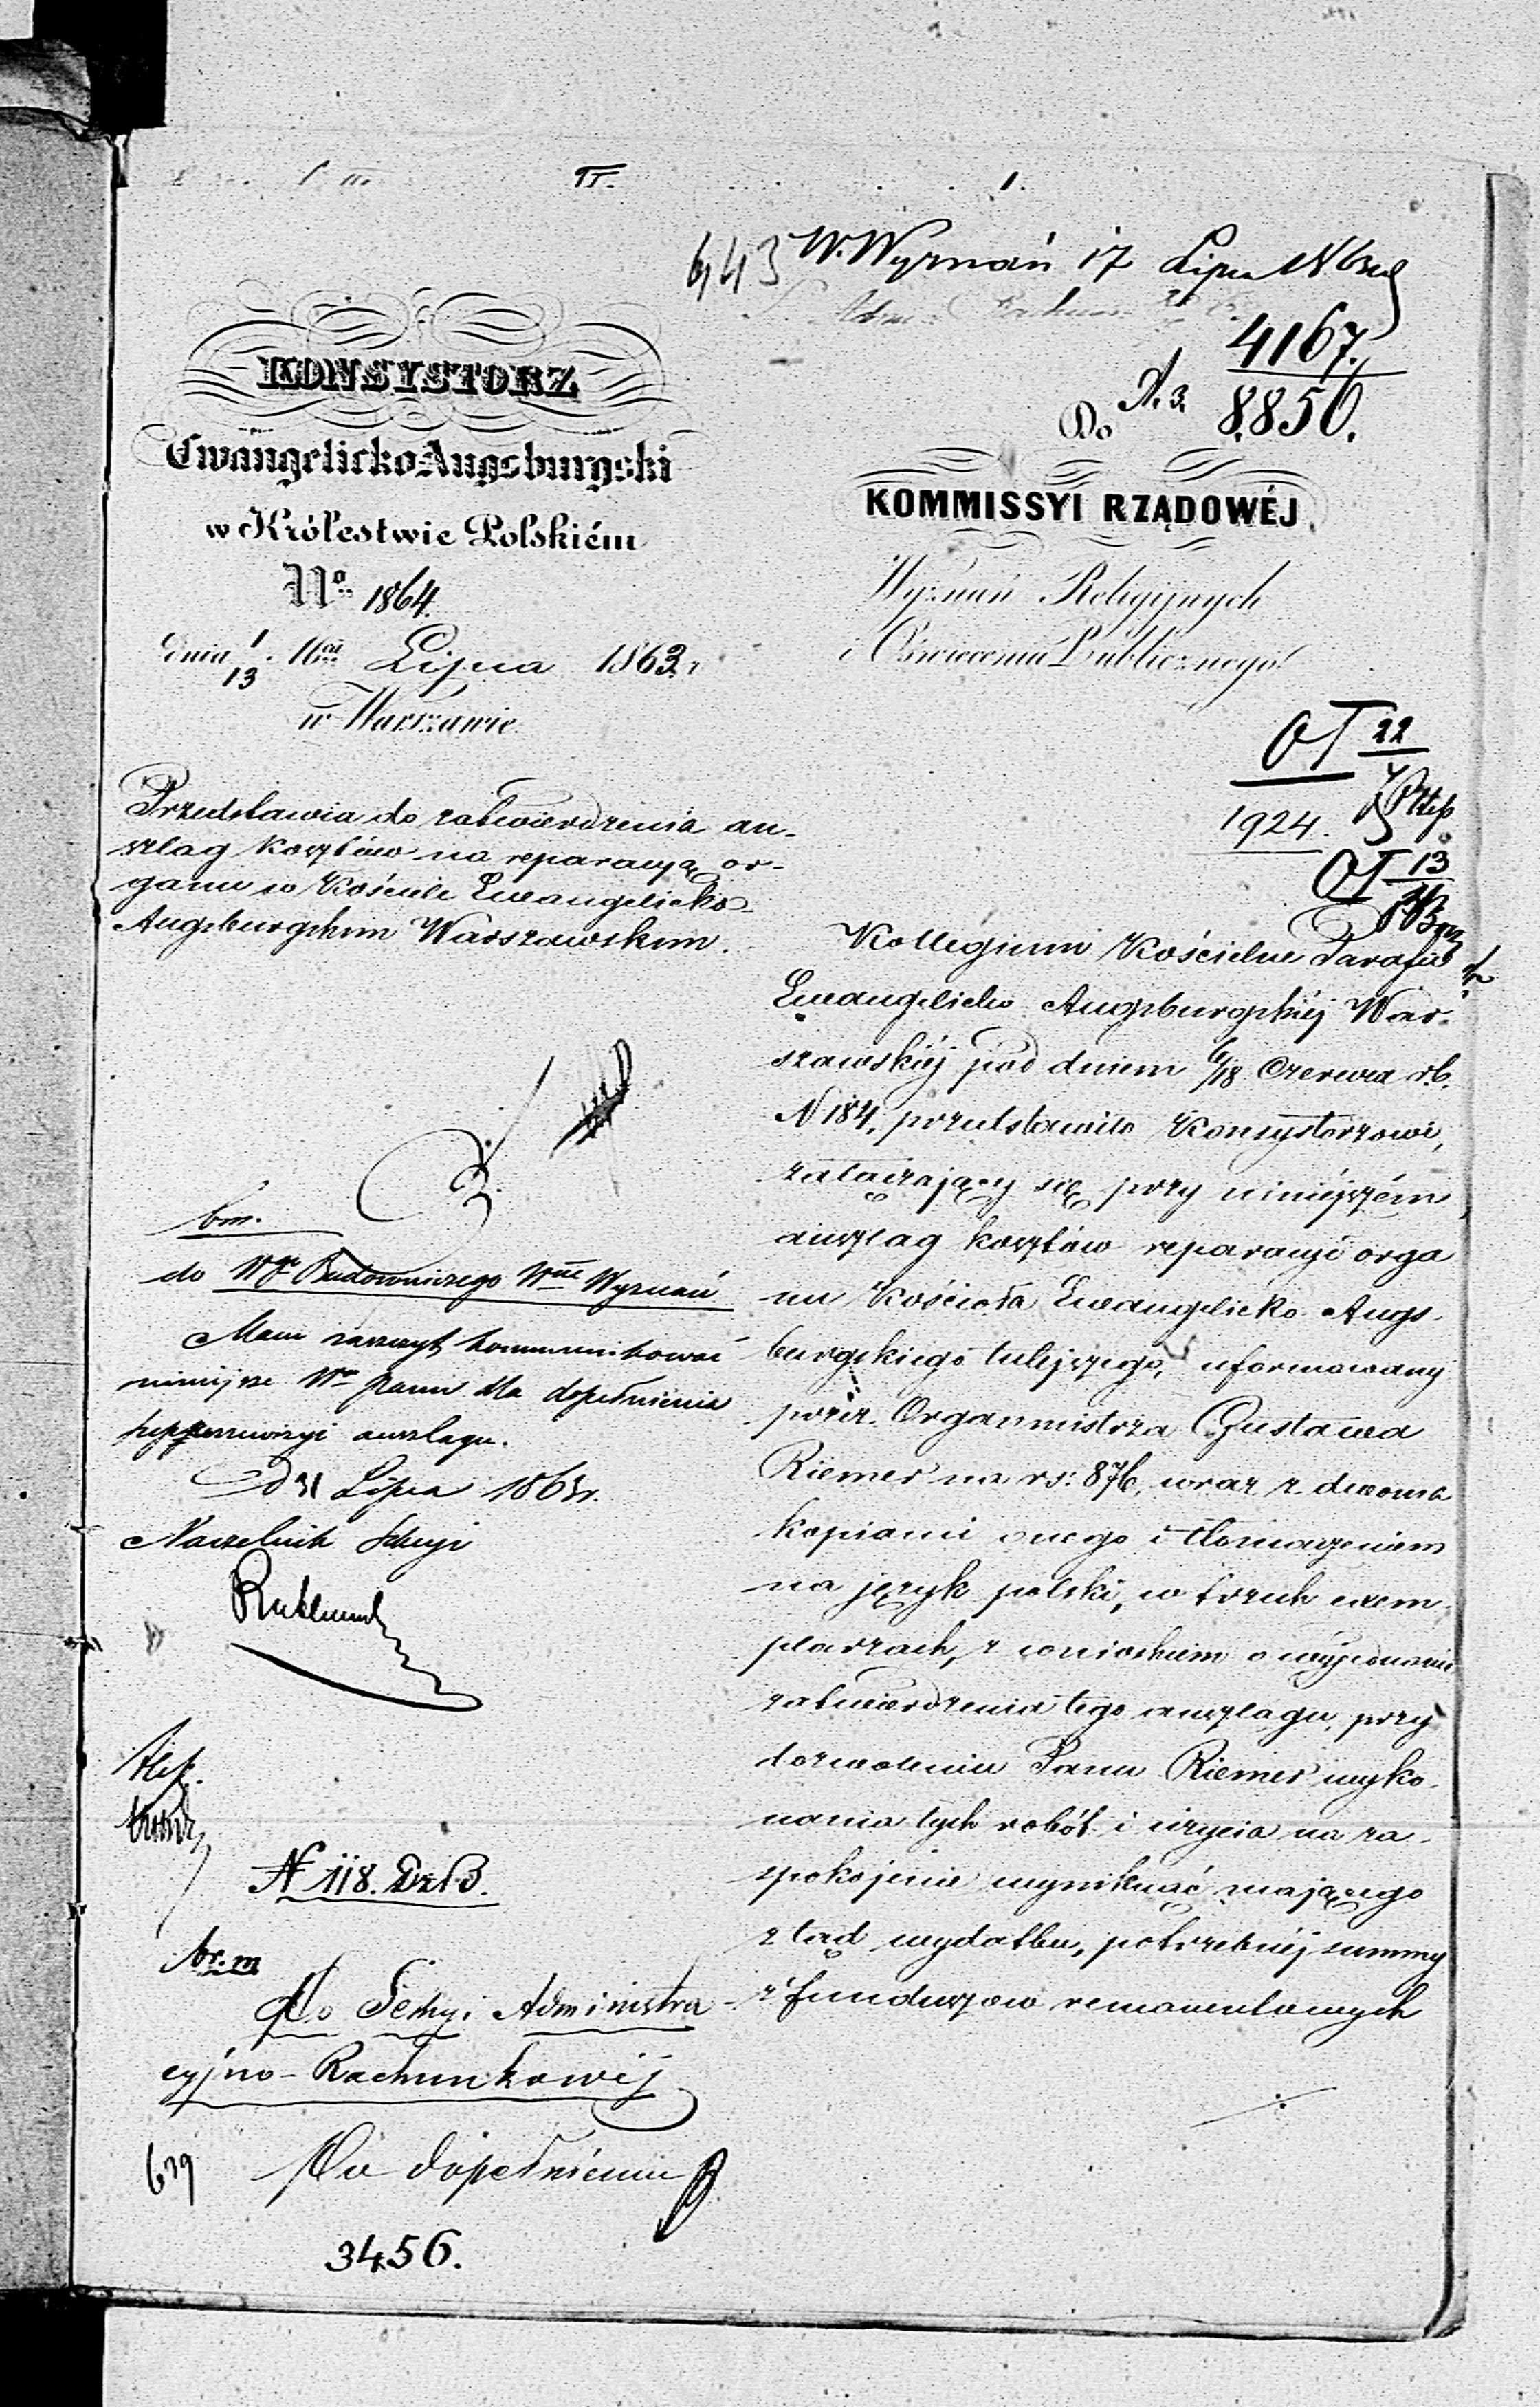 II.
I.
643 W. Wyznań 17 Lipca
4167.
A. 3. 8850.
KONSYSTORZ
Ewangelicko-Augsburgski
w Królestwie Polskiém
No 1864.
dnia 1/13 Lipca 1863 r
w Warszawie
Do
KOMMISSYI RZĄDOWÉJ
Wyznań Religijnych
i Oświecenia Publicznego
OT 22
1924.
OT 13
Przedstawia do zatwierdzenia an-
szlag kosztów na reparacyą or-
ganu w Kościele Ewangelicko-
Augsburgskim Warszawskim.
bm.
do Wgo Budowniczego Wne Wyznań
Mam zaszczyt kommunikować
niniejsze Wu panu dla dopełnienia
anszlagu.
d 31 Lipca 1863 r.
Naczelnik Sekcyi
N 118. Dz. B.
br. m
Do Sekcyi Administra-
cyjno-Rachunkowej
639
Po dopełnieniu
3456.
Kollegium Kościelne Parafii
Ewangelicko Augsburgskiéj War-
szawskiéj pod dniem 6/18 Czerwca r.b.
N 184, przedstawiło Konsystorzowi,
załączający się przy niniejszém
anszlag kosztów reparacyi orga
nu Kościoła Ewangelicko Augs-
burgskiego tutejszego, uformowany
przez Organmistrza Gustawa
Riemer na rs: 876, wraz z dwoma
kopiami onego i tłomaczeniem
na język polski, w trzech exem-
plarzach, z wnioskiem o wyjednanie
zatwierdzenia tego anszlagu, przy
dozwoleniu Panu Riemer wyko-
nania tych robót i użycia na za-
spokojenie wyniknąć mającego
ztąd wydatku, potrzebnéj summy
z funduszów remanentowych